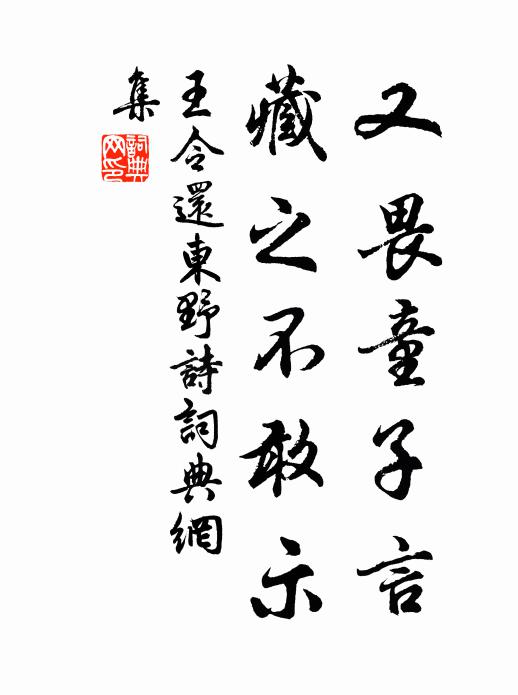 又畏童子言
藏之不敢示
王令還東野詩詞典網
集
詞典網印